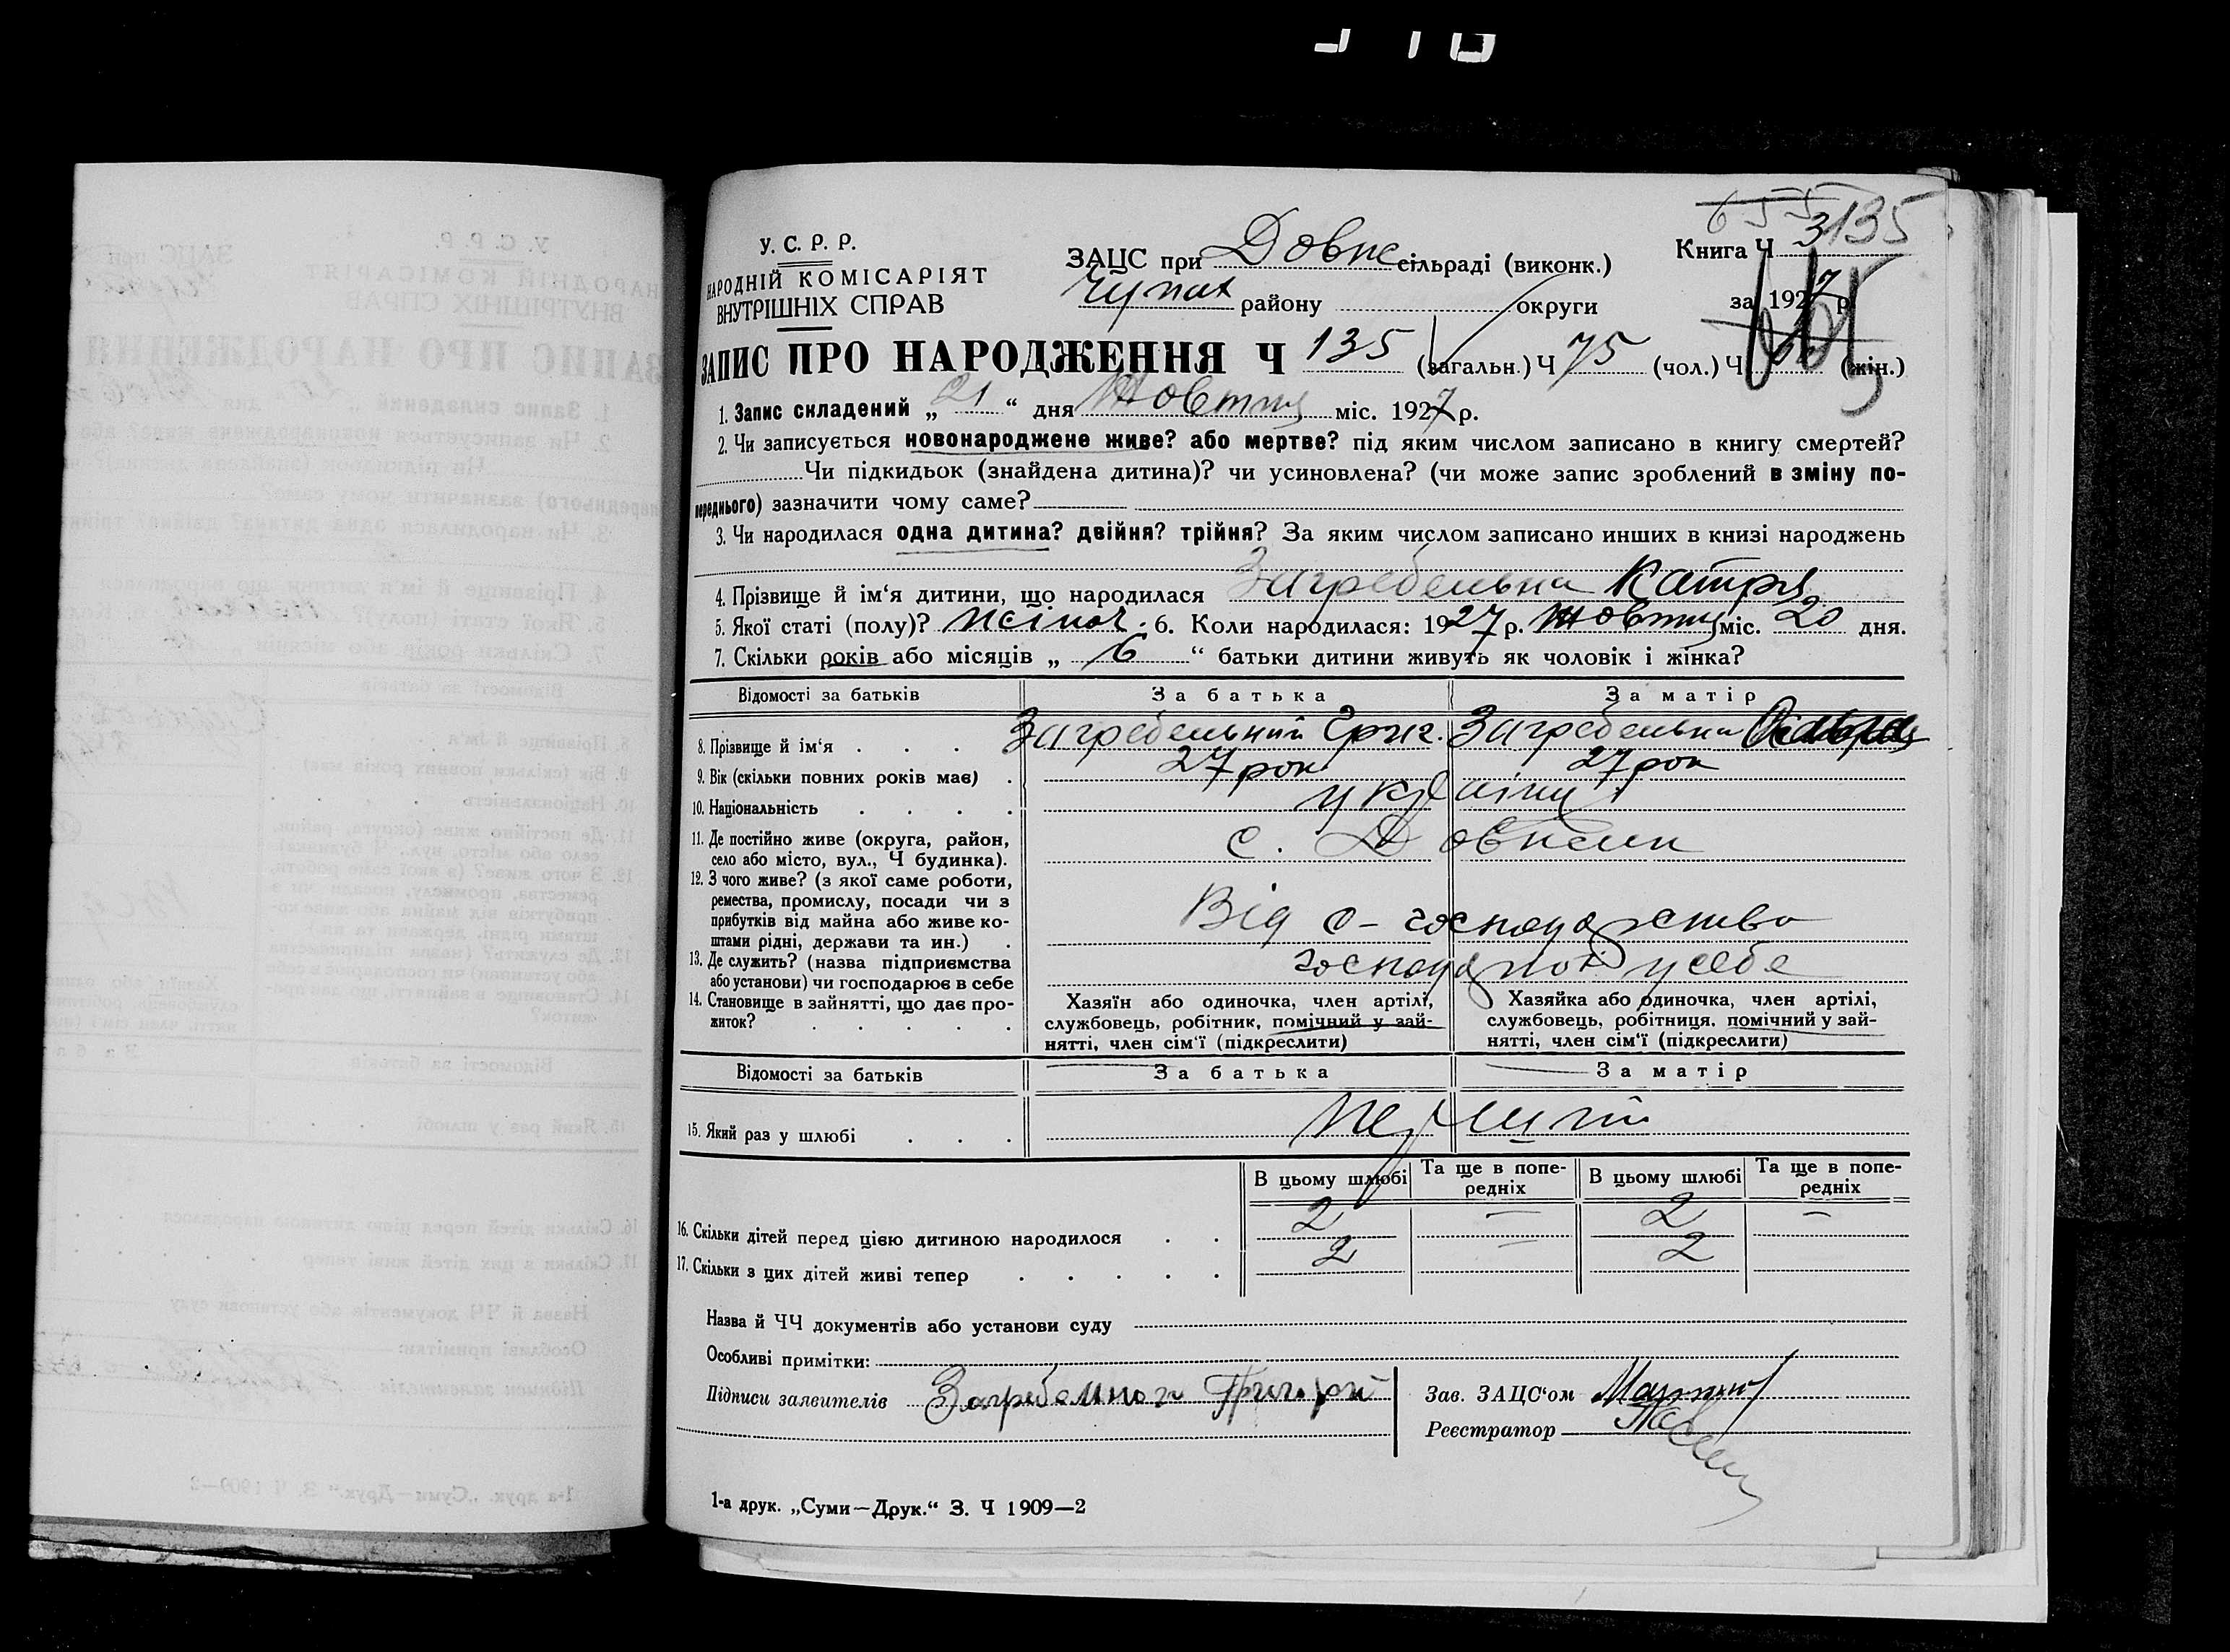 135
У. С. Р. Р.
НАРОДНІЙ КОМІСАРІЯТ
ВНУТРІШНІХ СПРАВ
ЗАЦС при Довж сільраді (виконк.)
району округи
Книга Ч 3
за 1927 р.
ЗАПИС ПРО НАРОДЖЕННЯ Ч 135 (загальн.) Ч 75 (чол.) Ч (жін.)
1. Запис складений „ 21 “ дня Жовтня міс. 1927 р.
2. Чи записується новонароджене живе? або мертве? під яким числом записано в книгу смертей?
Чи підкидьок (знайдена дитина)? чи усиновлена? (чи може запис зроблений в зміну по-
переднього) зазначити чому саме?
3. Чи народилася одна дитина? двійня? трійня? За яким числом записано инших в книзі народжень
4. Прізвище й ім‘я дитини, що народилася Загребельна Катря
5. Якої статі (полу)? жіноч. 6. Коли народилася: 1927 р. Жовтня міс. 20 дня.
7. Скільки років або місяців „ 6 “ батьки дитини живуть як чоловік і жінка?
Відомості за батьків За батька За матір
8. Прізвище й ім‘я . . . Загребельний Григ. Загребельна
9. Вік (скільки повних років має) . 27 рок 27 рок
10. Національність . . . . україн
11. Де постійно живе (округа, район,
село або місто, вул., Ч будинка).
с. Довжик
12. З чого живе? (з якої саме роботи,
ремества, промислу, посади чи з
прибутків від майна або живе ко-
штами рідні, держави та ин.) .
Від с-господарства
13. Де служить? (назва підприємства
або установи) чи господарює в себе
господар у себе
14. Становище в зайнятті, що дає про-
житок? . . . . .
Хазяїн або одиночка, член артілі,
службовець, робітник, помічний у зай-
нятті, член сім‘ї (підкреслити)
Хазяйка або одиночка, член артілі,
службовець, робітниця, помічний у зай-
нятті, член сім‘ї (підкреслити)
Відомості за батьків За батька За матір
15. Який раз у шлюбі . . . перший
В цьому шлюбі Та ще в попе-
редніх В цьому шлюбі Та ще в попе-
редніх
16. Скільки дітей перед цією дитиною народилося . . 2 — 2 —
17. Скільки з цих дітей живі тепер . . . . . 2 — 2
Назва й ЧЧ документів або установи суду
Особливі примітки:
Підписи заявителів Григорій
Зав. ЗАЦС‘ом
Реєстратор
1-а друк. „Суми—Друк.“ З. Ч 1909—2